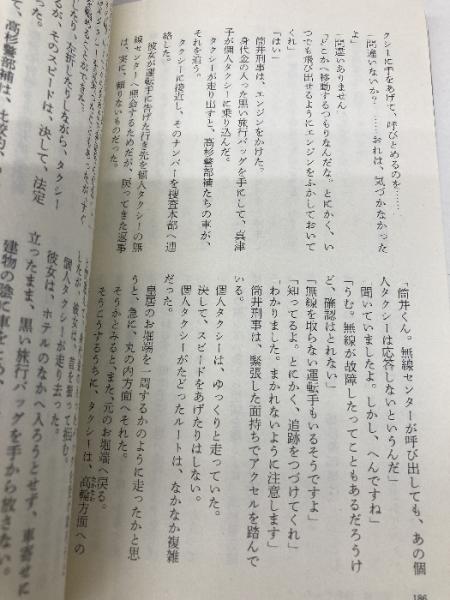 クシーに手をあげて、呼びとめるのを……
「間違いないか？　……おれは、気づかなかった
よ」
「間違いありません」
「どこかへ移動するつもりなんだな。とにかく、い
つでも飛び出せるようにエンジンをふかしておいて
くれ」
「はい」
筒井刑事は、エンジンをかけた。
身代金の入った黒い旅行バッグを手にして、真津
子が個人タクシーに乗り込んだ。
タクシーが走り出すと、高杉警部補たちの車が、
それを追う。
タクシーに接近し、そのナンバーを捜査本部へ連
絡した。
彼女が運転手に告げた行き先を個人タクシーの無
線センターへ照会するためだが、戻ってきた返事
は、実に、頼りないものだった。
「筒井くん。無線センターが呼び出しても、あの個
人タクシーは応答しないというんだ」
「聞いていましたよ。しかし、へんですね」
「うむ。無線が故障したってこともあるだろうけ
ど、確認はとれない」
「無線を取らない運転手もいるそうですよ」
「知ってるよ。とにかく、追跡をつづけてくれ」
「わかりました。まかれないように注意します」
筒井刑事は、緊張した面持ちでアクセルを踏んで
いる。
個人タクシーは、ゆっくりと走っていた。
決して、スピードをあげたりはしない。
個人タクシーがたどったルートは、なかなか複雑
だった。
皇居のお堀端を一周するかのように走ったかと思
うと、急に、丸の内方面へそれた。
そうかとみると、また、元のお堀端へ戻る。
そうこうするうちに、タクシーは、高輪方面への
186
したり、左折したりしながら、タクシー
るが、そのスピードは、決して、法定
高杉警部補は、比較的、
個人タクシーが走り去った。
彼女は、ホテルのなかへ入ろうとせず、車寄せに
立ったまま、黒い旅行バッグを手から放さない。
建物の陰に車をとめ、